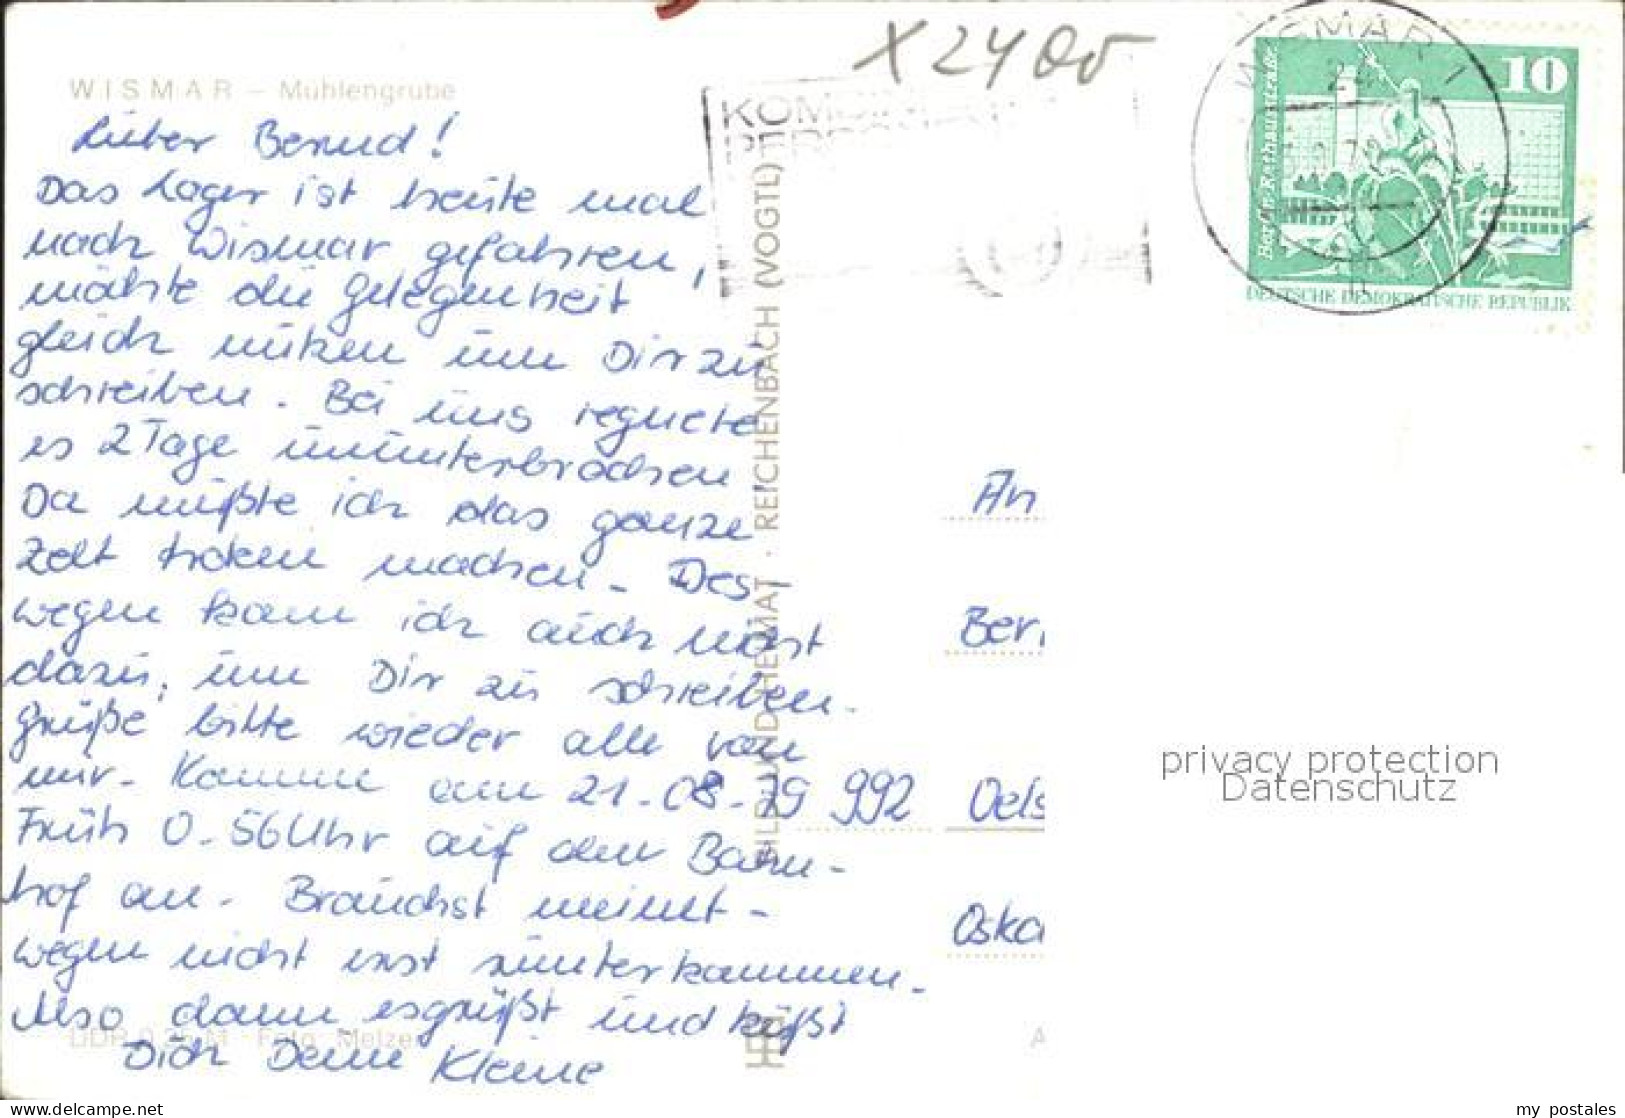 WISMAR – Mühlengrube
Lieber Bernd!
Das Lager ist heute mal
nach Wismar gefahren,
möchte die Gelegenheit
gleich nützen um Dir zu
schreiben. Bei uns regnete
es 2 Tage ununterbrochen
Da mußte ich das ganze
Zelt trocken machen. Des-
wegen kam ich auch nicht
dazu, um Dir zu schreiben.
Grüße bitte wieder alle von
mir. Komme am 21.08.79
Früh 0.56 Uhr auf dem Bahn-
hof an. Brauchst meinet-
wegen nicht erst runterkommen.
Also dann esgrüßt und küßt
Dich Deine Kleine
DDR 0,25 M · Foto: Melzer
BILD UND HEIMAT · REICHENBACH (VOGTL)
X2400
WISMAR 1
10
Berlin, Rathausstraße
DEUTSCHE DEMOKRATISCHE REPUBLIK
An
Ber
992 Oels
Oska
A
privacy protection
Datenschutz
www.delcampe.net
my_postales